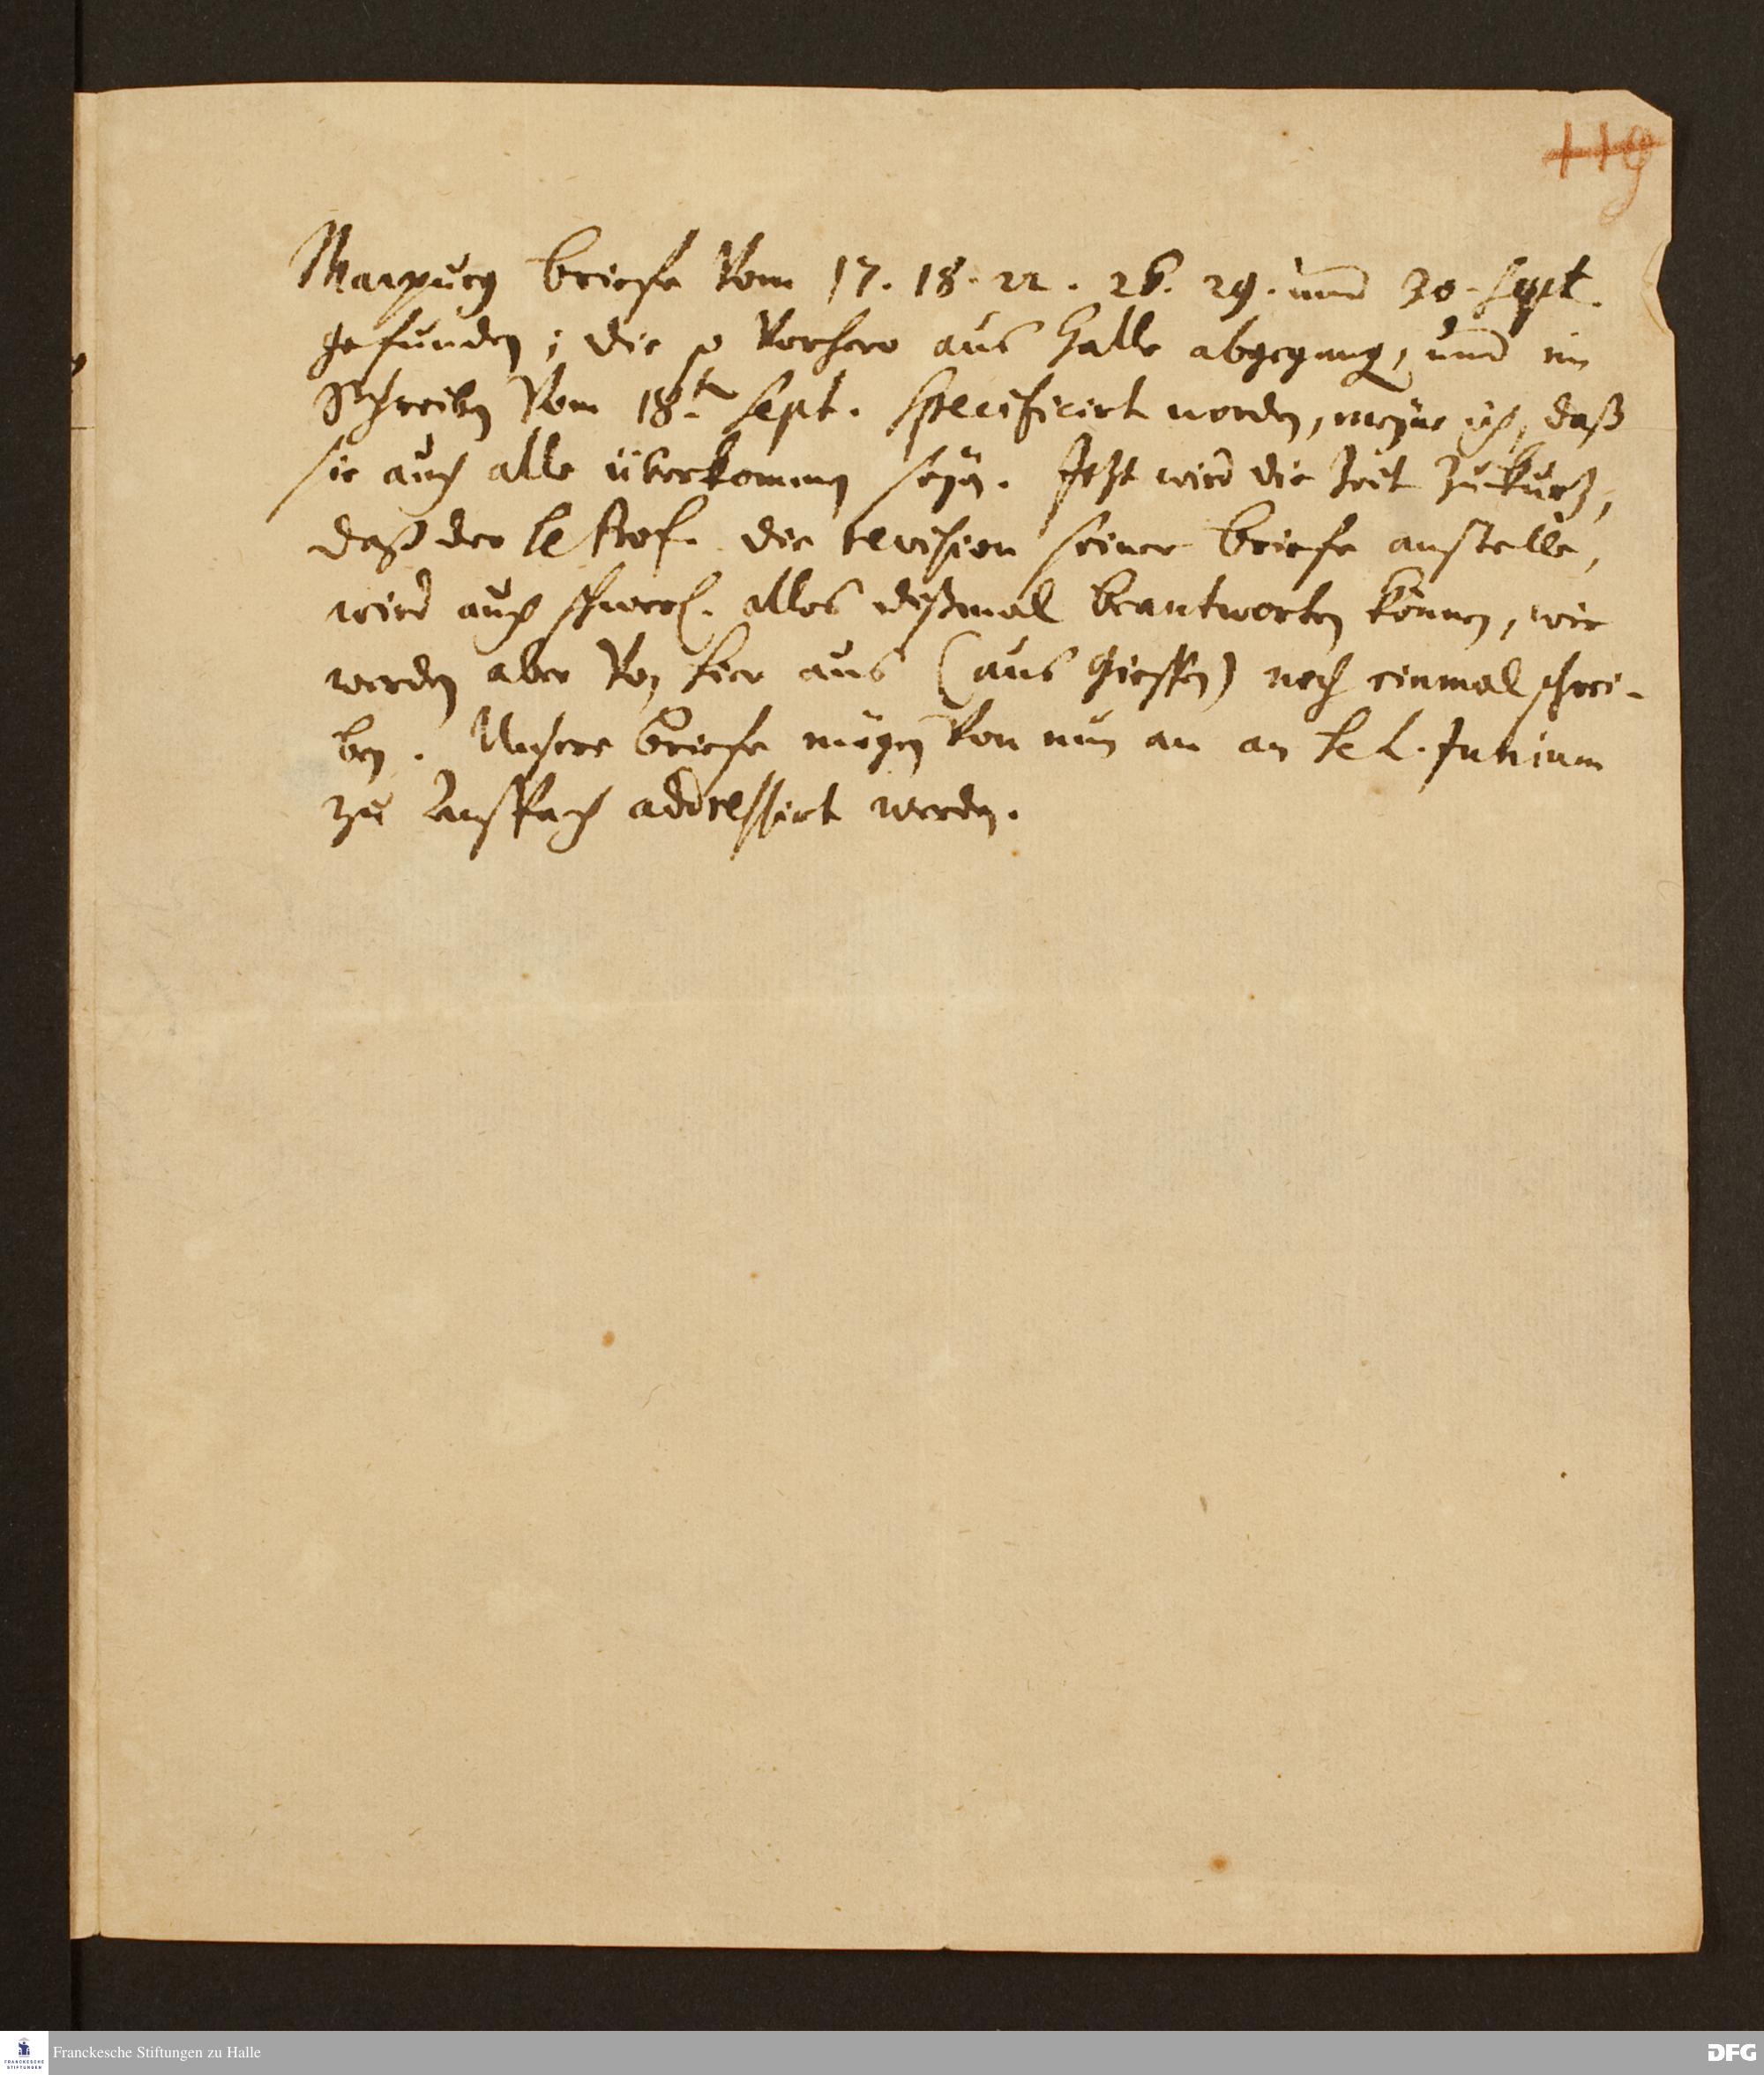 119
Marpurg briefe Vom 17. 18. 22. 26. 29. und 30. Sept.
gefunden; die so Vorhero aus Halle abgegang, und im
Schreiben Vom 18t. Sept. specificirt worden, meyne ich, daß
sie auch alle überkommen seyn. Jetzt wird die Zeit zu kurtz,
daß der H Prof. die revision seiner briefe anstelle,
wird auch schwerl. alles dißmal beantworten können, wir
werden aber Von hier aus (aus Giessen) noch einmal schrei-
ben. Unsere briefe mögen Von nun an an H L. Junium
zu Anspach addressirt werden.
Franckesche Stiftungen zu Halle
FRANCKESCHE
STIFTUNGEN
DFG